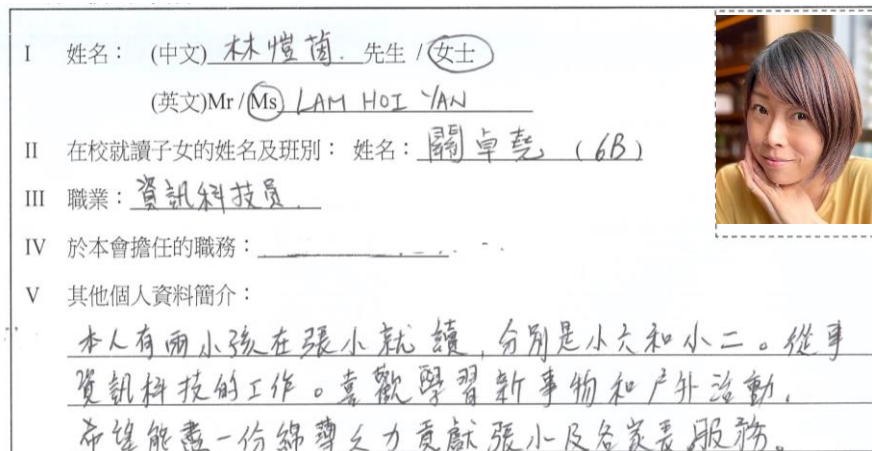 I 姓名： (中文) 林愷茵. 先生 / 女士
(英文)Mr / Ms LAM HOI YAN
II 在校就讀子女的姓名及班別： 姓名： 關卓堯 (6B)
III 職業： 資訊科技員.
IV 於本會擔任的職務：
V 其他個人資料簡介：
本人有兩小孩在張小就讀, 分別是小六和小二。從事
資訊科技的工作。喜歡學習新事物和戶外活動,
希望能盡一份綿薄之力貢獻張小及各家長服務。